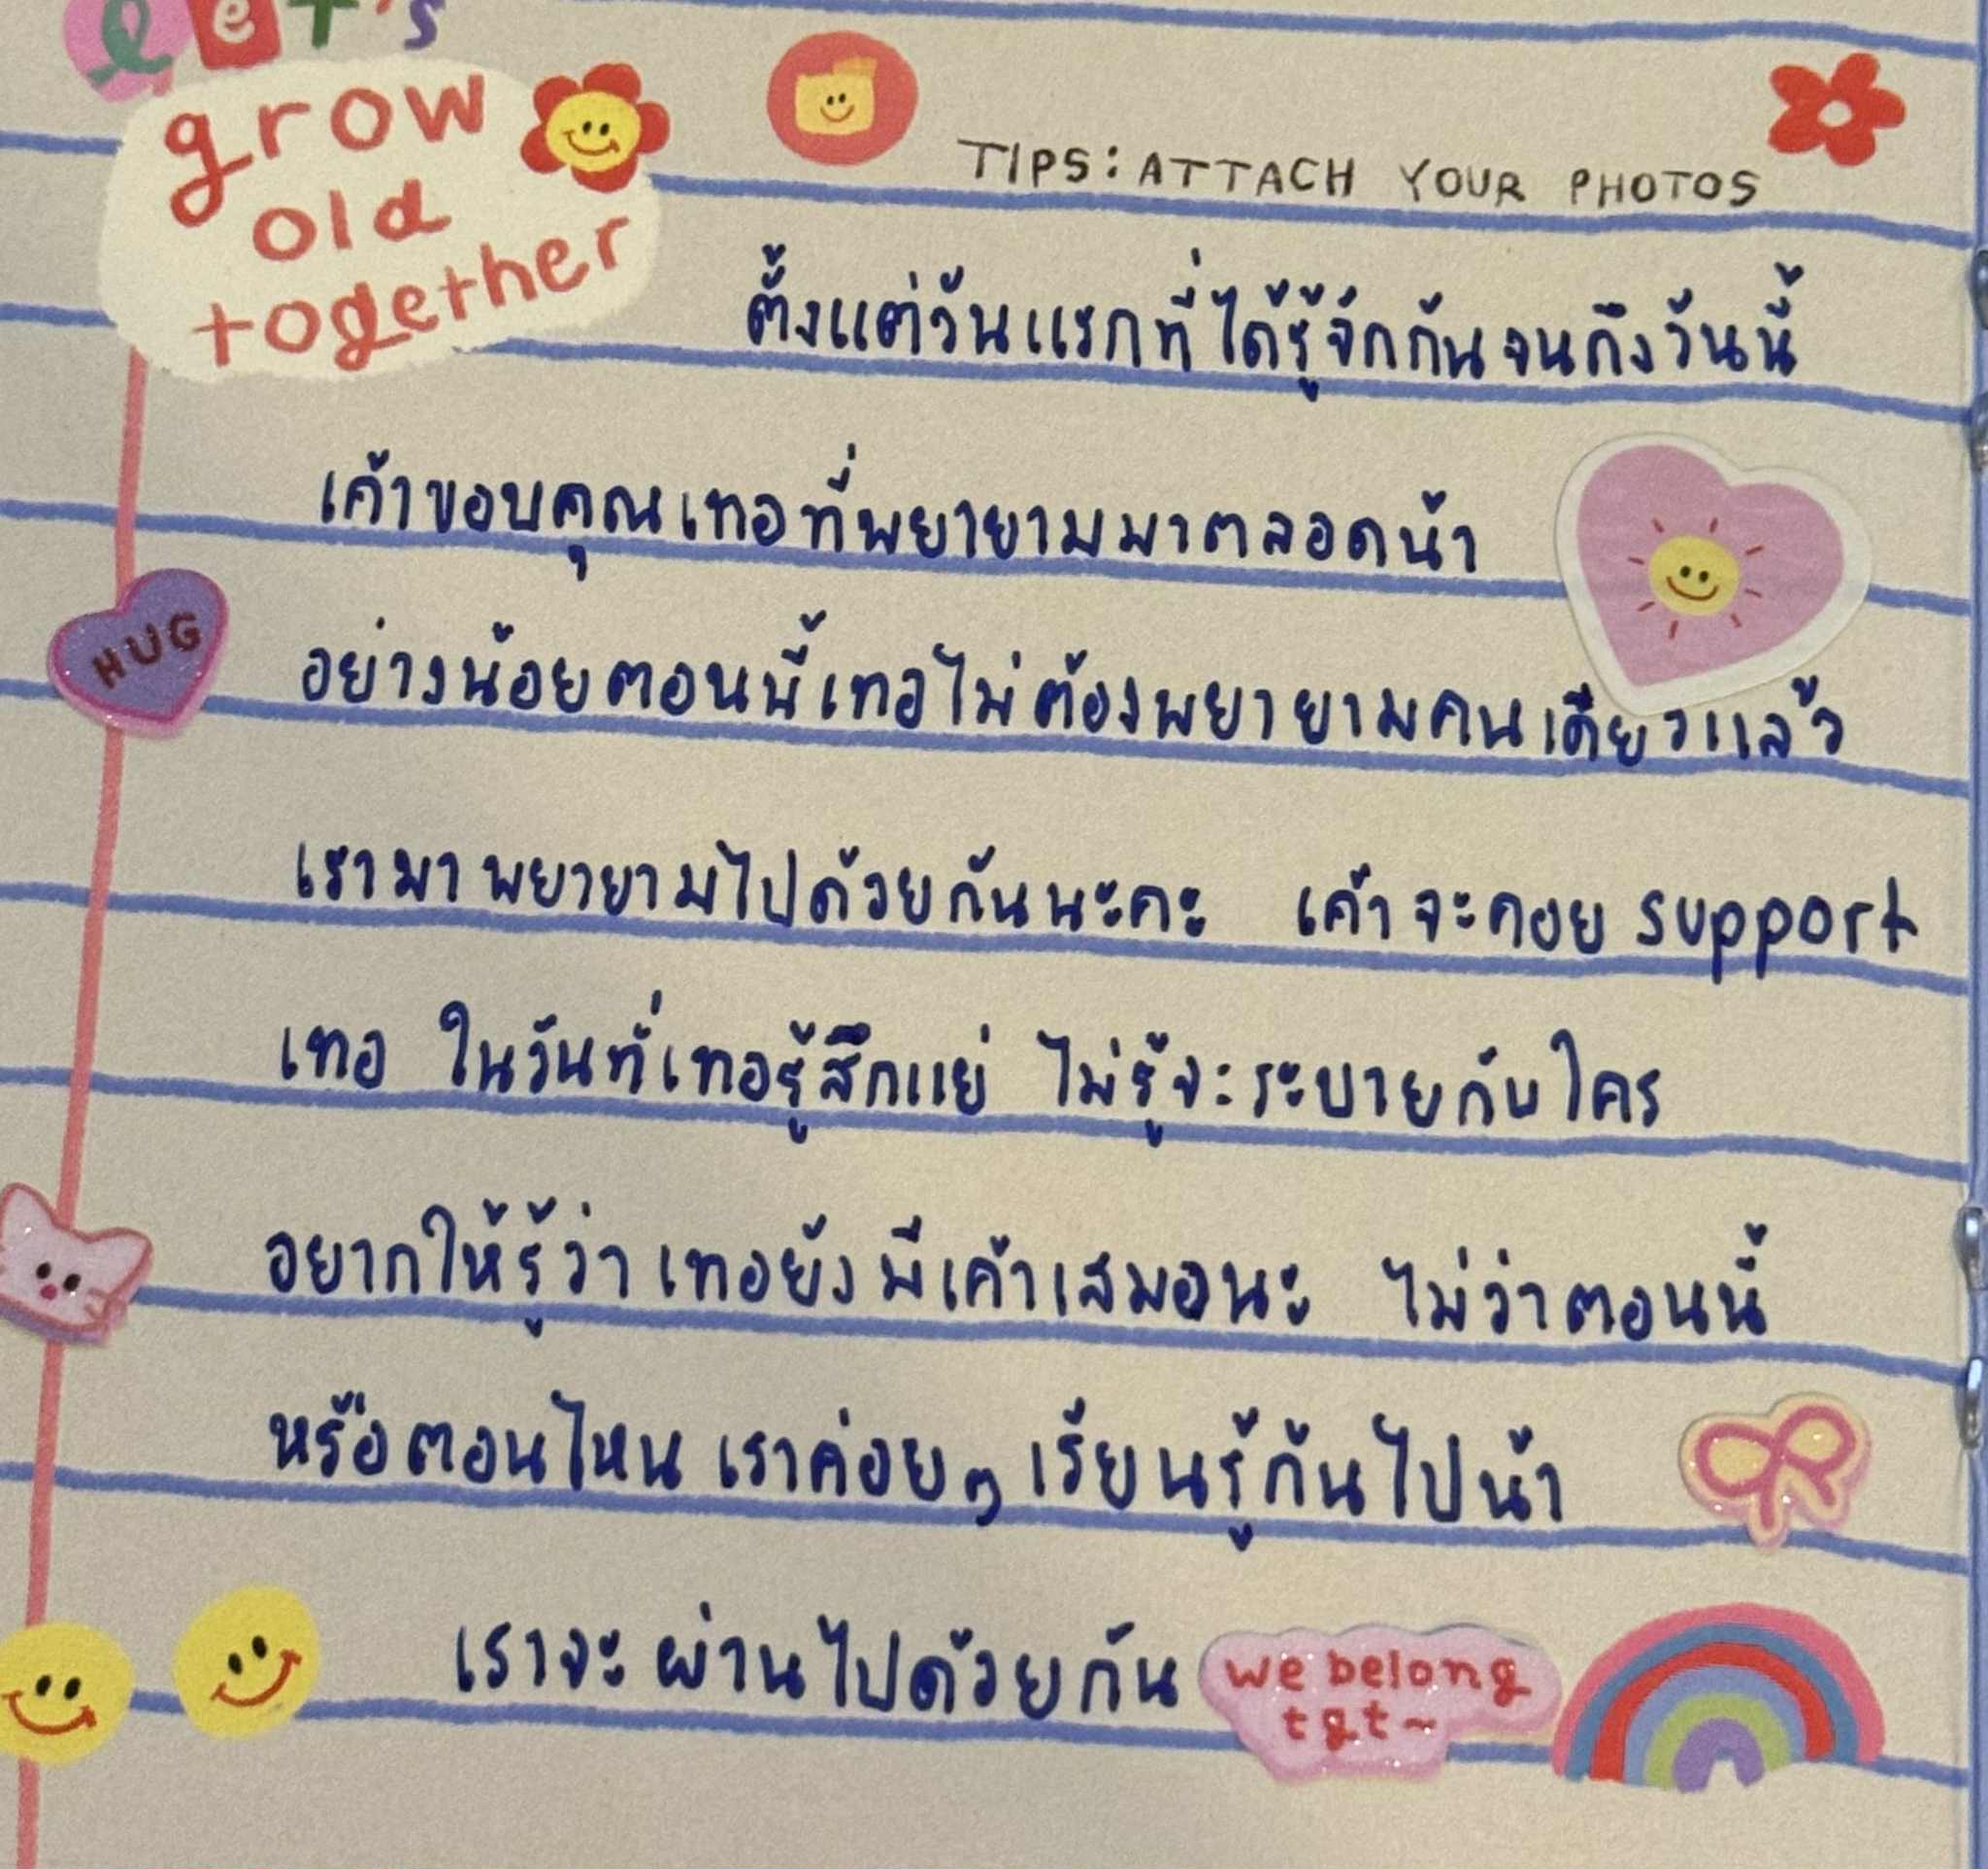 let's
grow
old
together
TIPS: ATTACH YOUR PHOTOS
ตั้งแต่วันแรกที่ได้รู้จักกันจนถึงวันนี้
เค้าขอบคุณเทอที่พยายามมาตลอดน้า
HUG
อย่างน้อยตอนนี้เทอไม่ต้องพยายามคนเดียวแล้ว
เรามาพยายามไปด้วยกันนะคะ เค้าจะคอย support
เทอ ในวันที่เทอรู้สึกแย่ ไม่รู้จะระบายกับใคร
อยากให้รู้ว่า เทอยังมีเค้าเสมอนะ ไม่ว่าตอนนี้
หรือตอนไหน เราค่อยๆ เรียนรู้กันไปน้า
เราจะผ่านไปด้วยกัน
we belong
tgt~